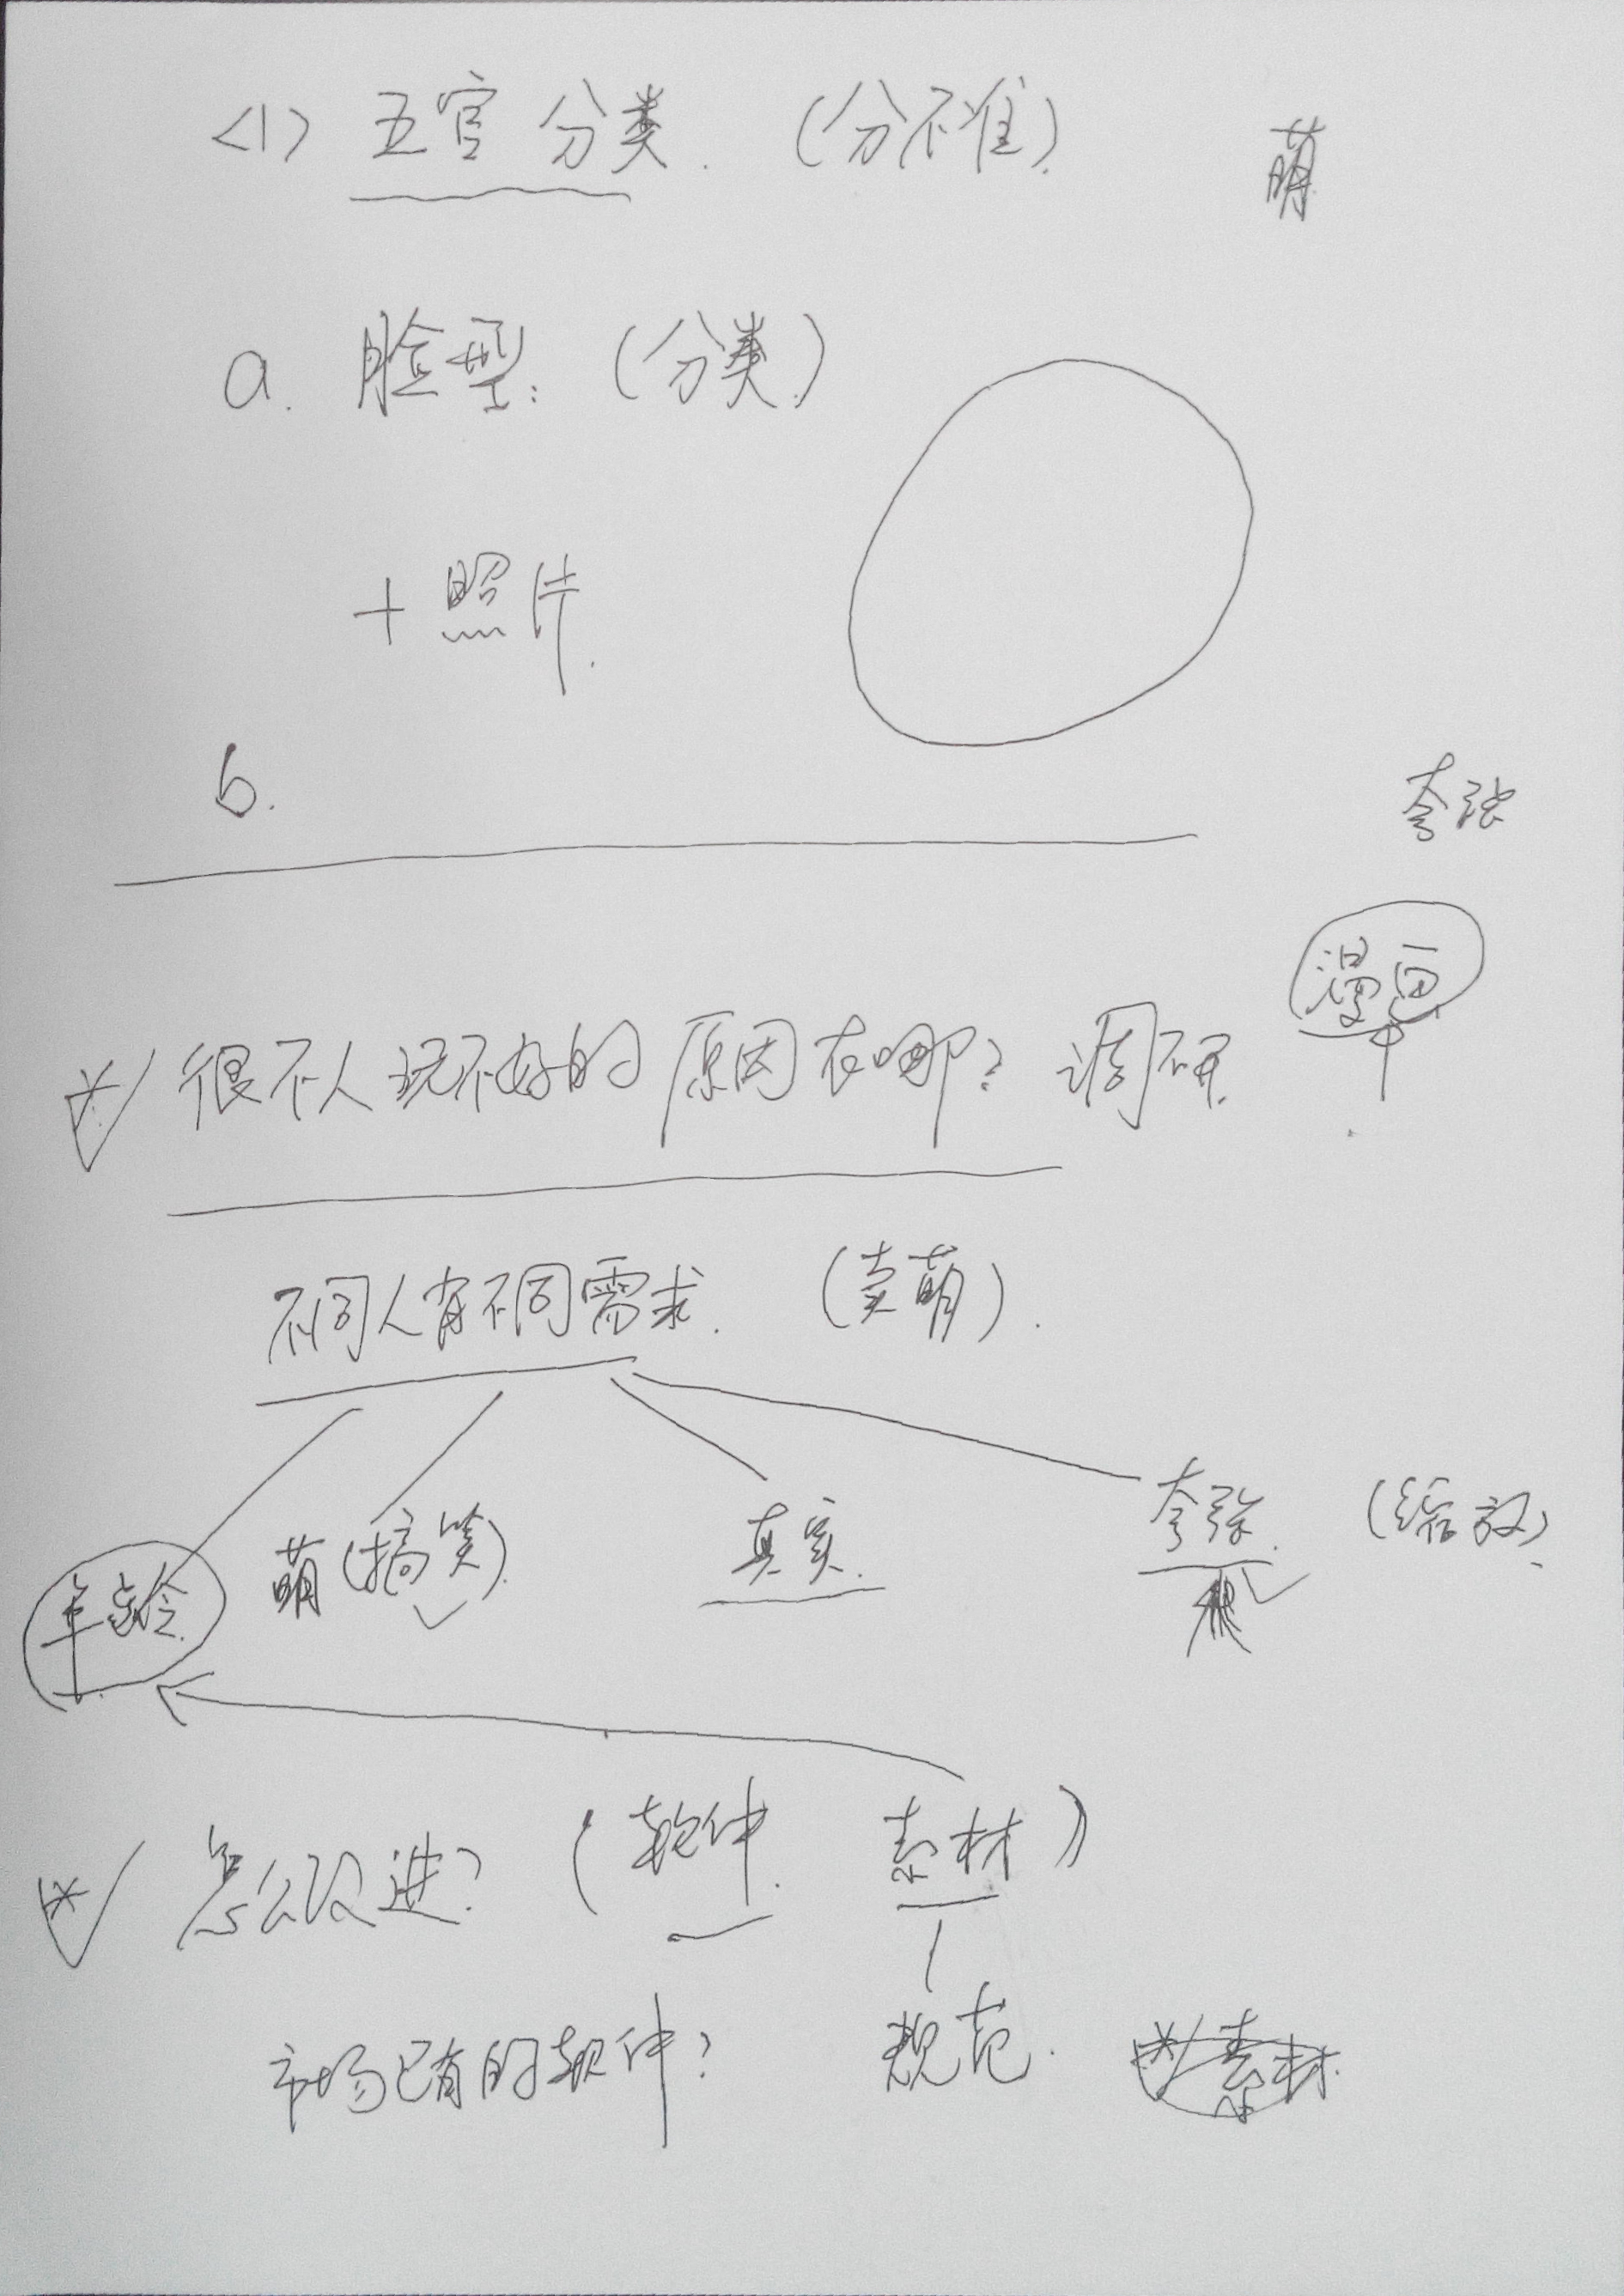 <1> 五官分类. (分不准).
萌
a. 脸型: (分类)
+ 照片.
b.
夸张
漫画
很不人玩不好的原因在哪? 调研.
不同人有不同需求. (卖萌).
年龄 萌(搞笑). 真实. 夸张. (缩放).
怎么改进? (软件. 素材)
市场已有的软件? 规范. 素材.